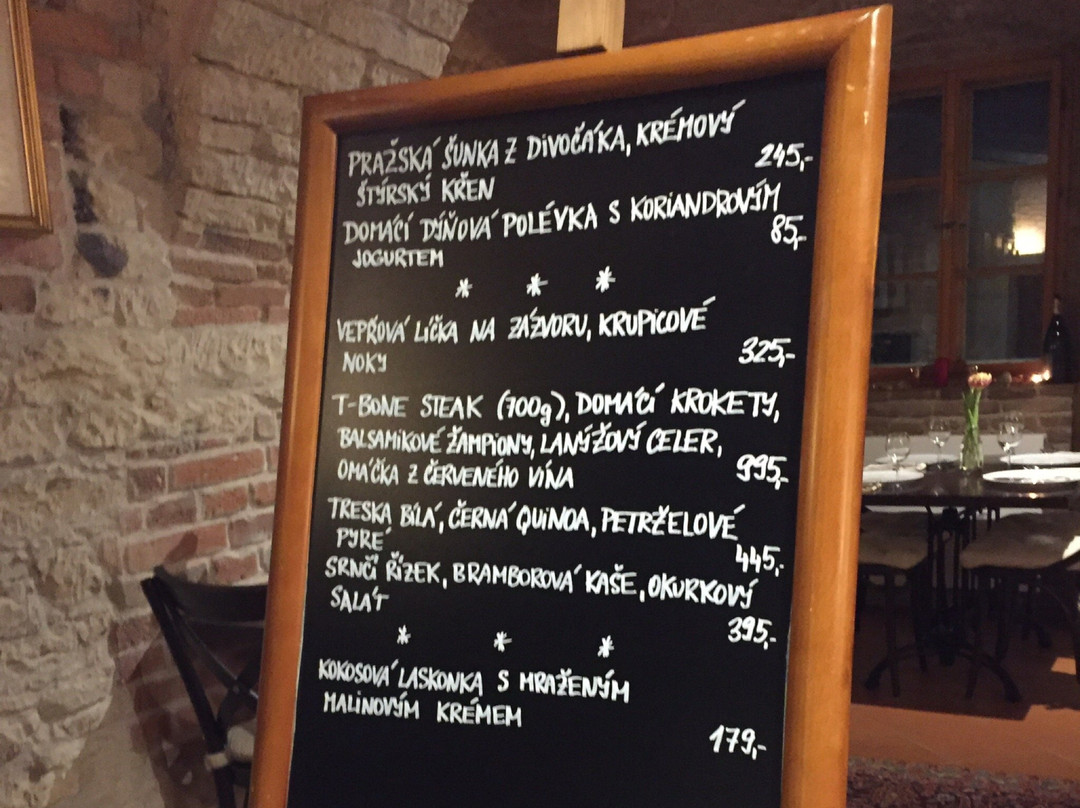 PRAŽSKÁ ŠUNKA Z DIVOČÁKA, KRÉMOVÝ
ŠTÝRSKÝ KŘEN 245,-
DOMÁCÍ DÝŇOVÁ POLÉVKA S KORIANDROVÝM
JOGURTEM 85,-
* * *
VEPŘOVÁ LÍČKA NA ZÁZVORU, KRUPICOVÉ
NOKY 325,-
T-BONE STEAK (700g), DOMÁCÍ KROKETY,
BALSAMIKOVÉ ŽAMPIONY, LANÝŽOVÝ CELER,
OMÁČKA Z ČERVENÉHO VÍNA 995,-
TRESKA BÍLÁ, ČERNÁ QUINOA, PETRŽELOVÉ
PYRÉ 445,-
SRNČÍ ŘÍZEK, BRAMBOROVÁ KAŠE, OKURKOVÝ
SALÁT 395,-
* * *
KOKOSOVÁ LASKONKA S MRAŽENÝM
MALINOVÝM KRÉMEM
179,-